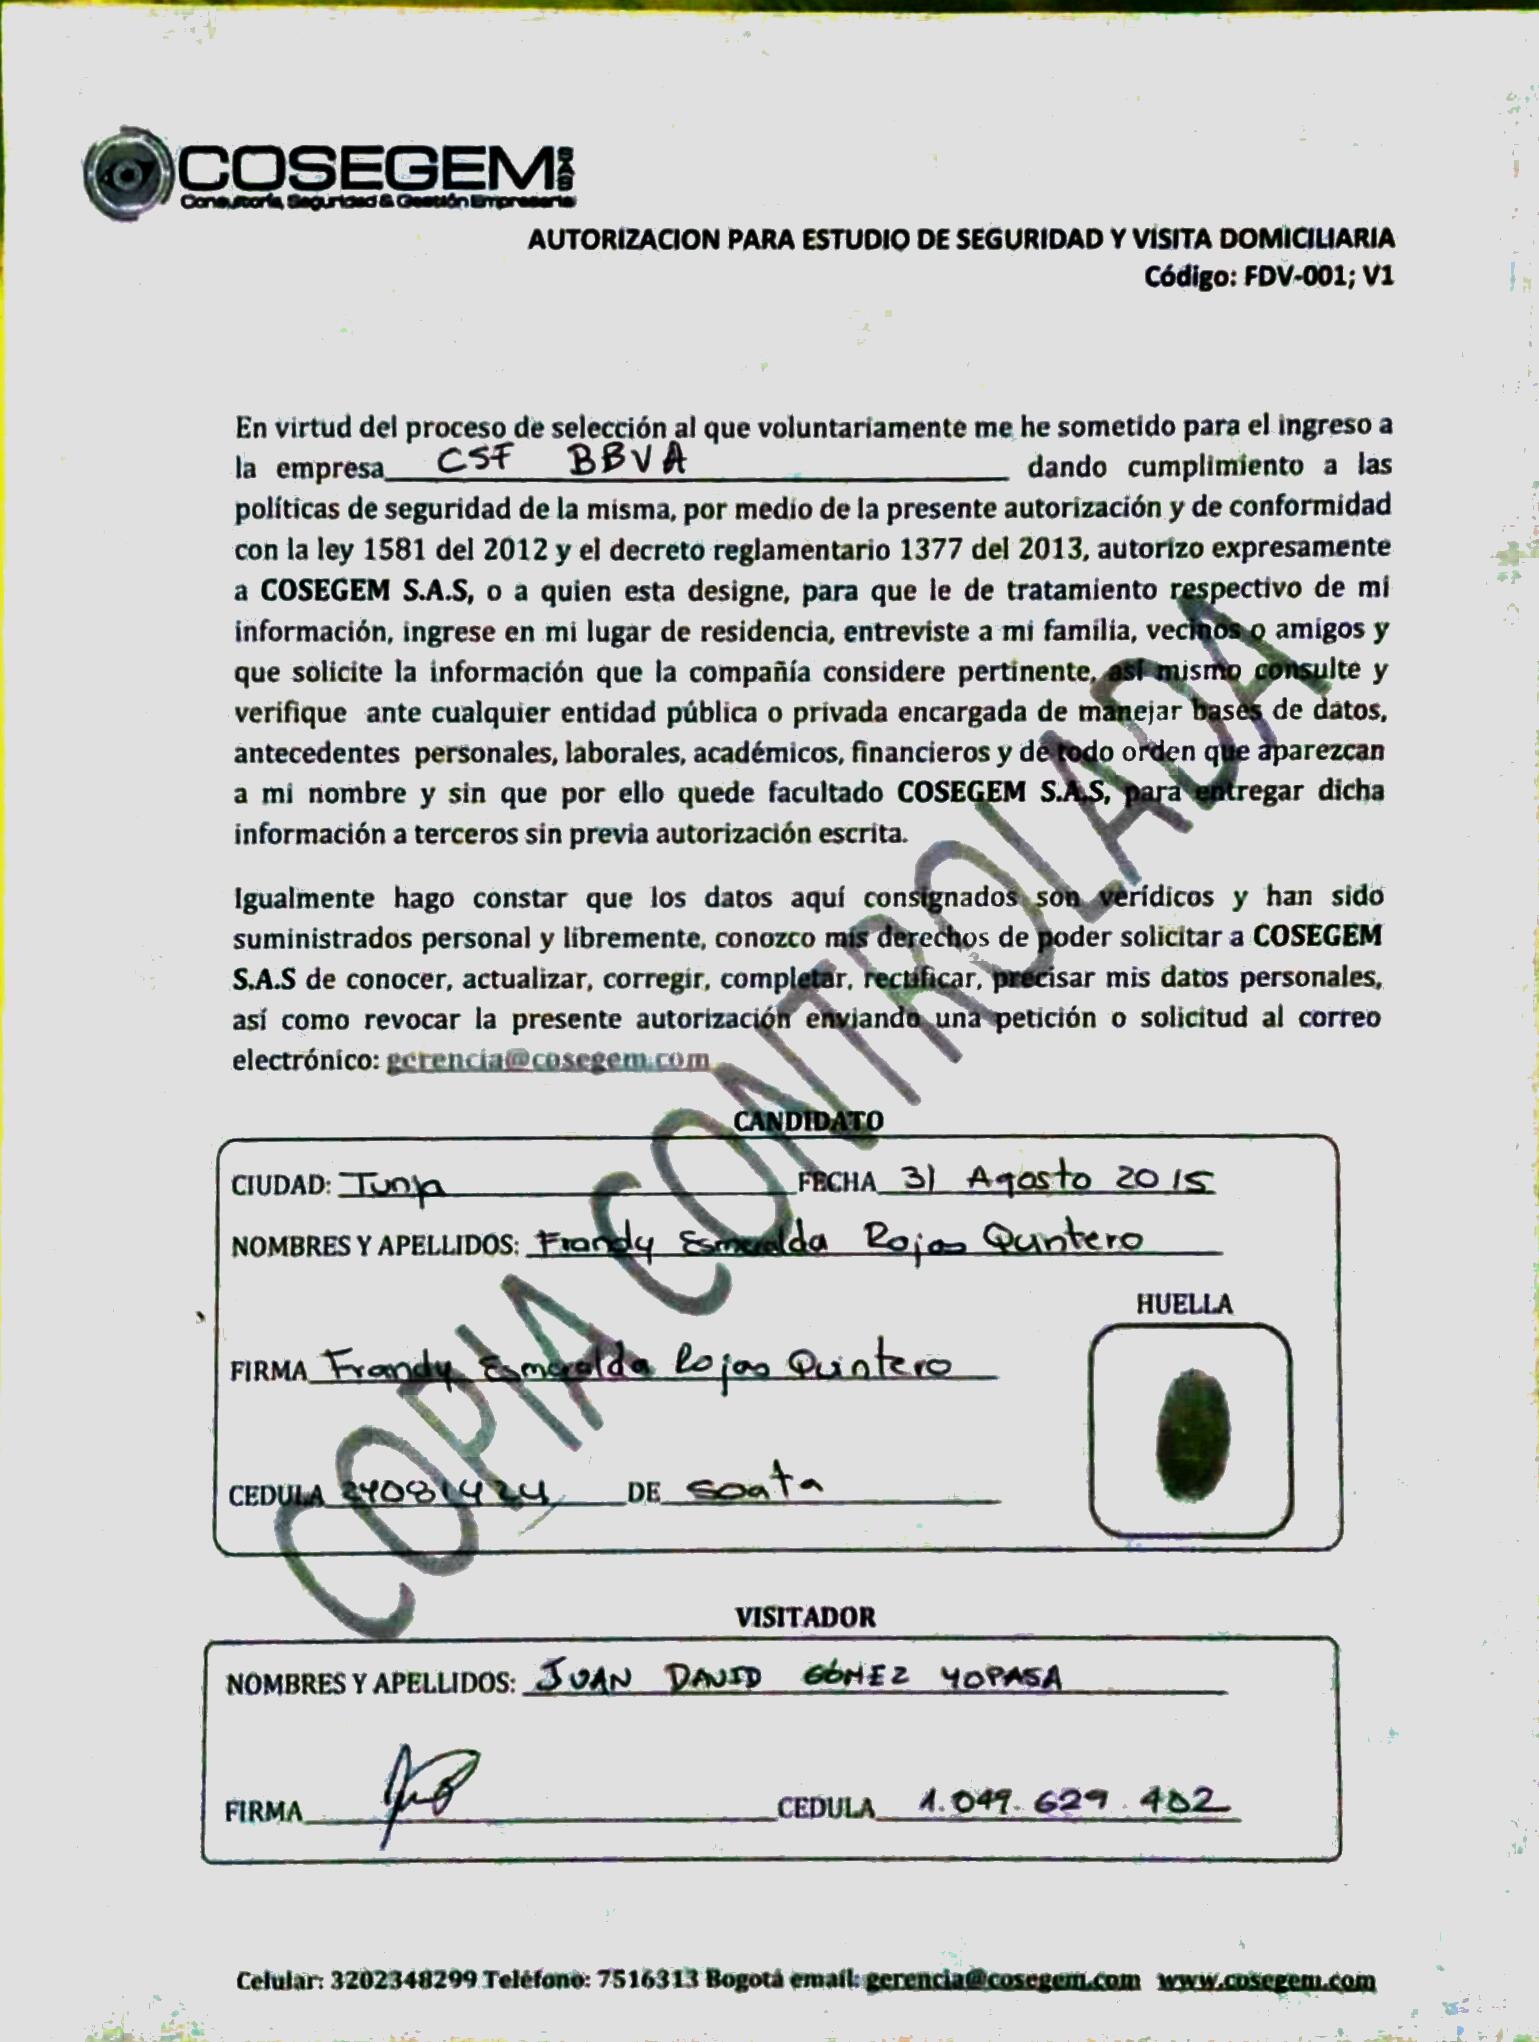 COSEGEM SAS
Consultoría, Seguridad & Gestión Empresarial
AUTORIZACION PARA ESTUDIO DE SEGURIDAD Y VISITA DOMICILIARIA
Código: FDV-001; V1
En virtud del proceso de selección al que voluntariamente me he sometido para el ingreso a
la empresa CSF BBVA dando cumplimiento a las
políticas de seguridad de la misma, por medio de la presente autorización y de conformidad
con la ley 1581 del 2012 y el decreto reglamentario 1377 del 2013, autorizo expresamente
a COSEGEM S.A.S, o a quien esta designe, para que le de tratamiento respectivo de mi
información, ingrese en mi lugar de residencia, entreviste a mi familia, vecinos o amigos y
que solicite la información que la compañía considere pertinente, así mismo consulte y
verifique ante cualquier entidad pública o privada encargada de manejar bases de datos,
antecedentes personales, laborales, académicos, financieros y de todo orden que aparezcan
a mi nombre y sin que por ello quede facultado COSEGEM S.A.S, para entregar dicha
información a terceros sin previa autorización escrita.
Igualmente hago constar que los datos aquí consignados son verídicos y han sido
suministrados personal y libremente, conozco mis derechos de poder solicitar a COSEGEM
S.A.S de conocer, actualizar, corregir, completar, rectificar, precisar mis datos personales,
así como revocar la presente autorización enviando una petición o solicitud al correo
electrónico: gerencia@cosegem.com
COPIA CONTROLADA
CANDIDATO
CIUDAD: Tunja FECHA 31 Agosto 2015
NOMBRES Y APELLIDOS: Frandy Esmeralda Rojas Quintero
HUELLA
FIRMA Frandy Esmeralda Rojas Quintero
CEDULA 24081424 DE Soata
VISITADOR
NOMBRES Y APELLIDOS: JUAN DAVID GÓMEZ YOPASA
FIRMA CEDULA 1.049.629.402
Celular: 3202348299 Teléfono: 7516313 Bogotá email: gerencia@cosegem.com www.cosegem.com